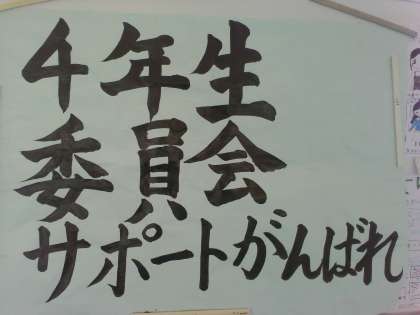 4年生
委員会
サポートがんばれ